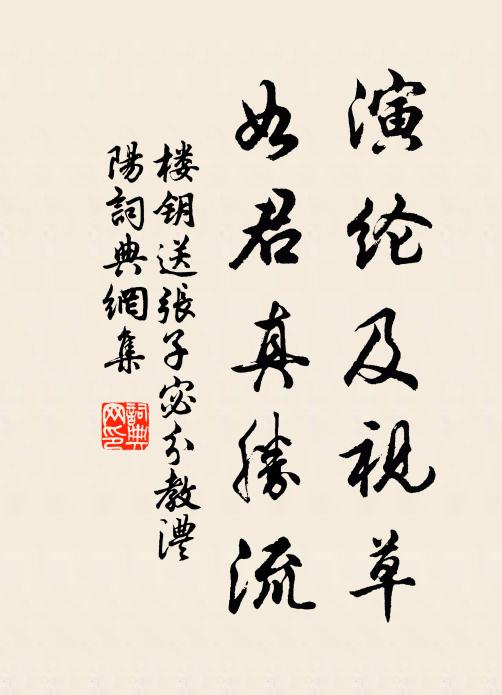 演纶及视草
如君真勝流
楼钥送張子宓分教澧
陽詞典網集
詞典网印